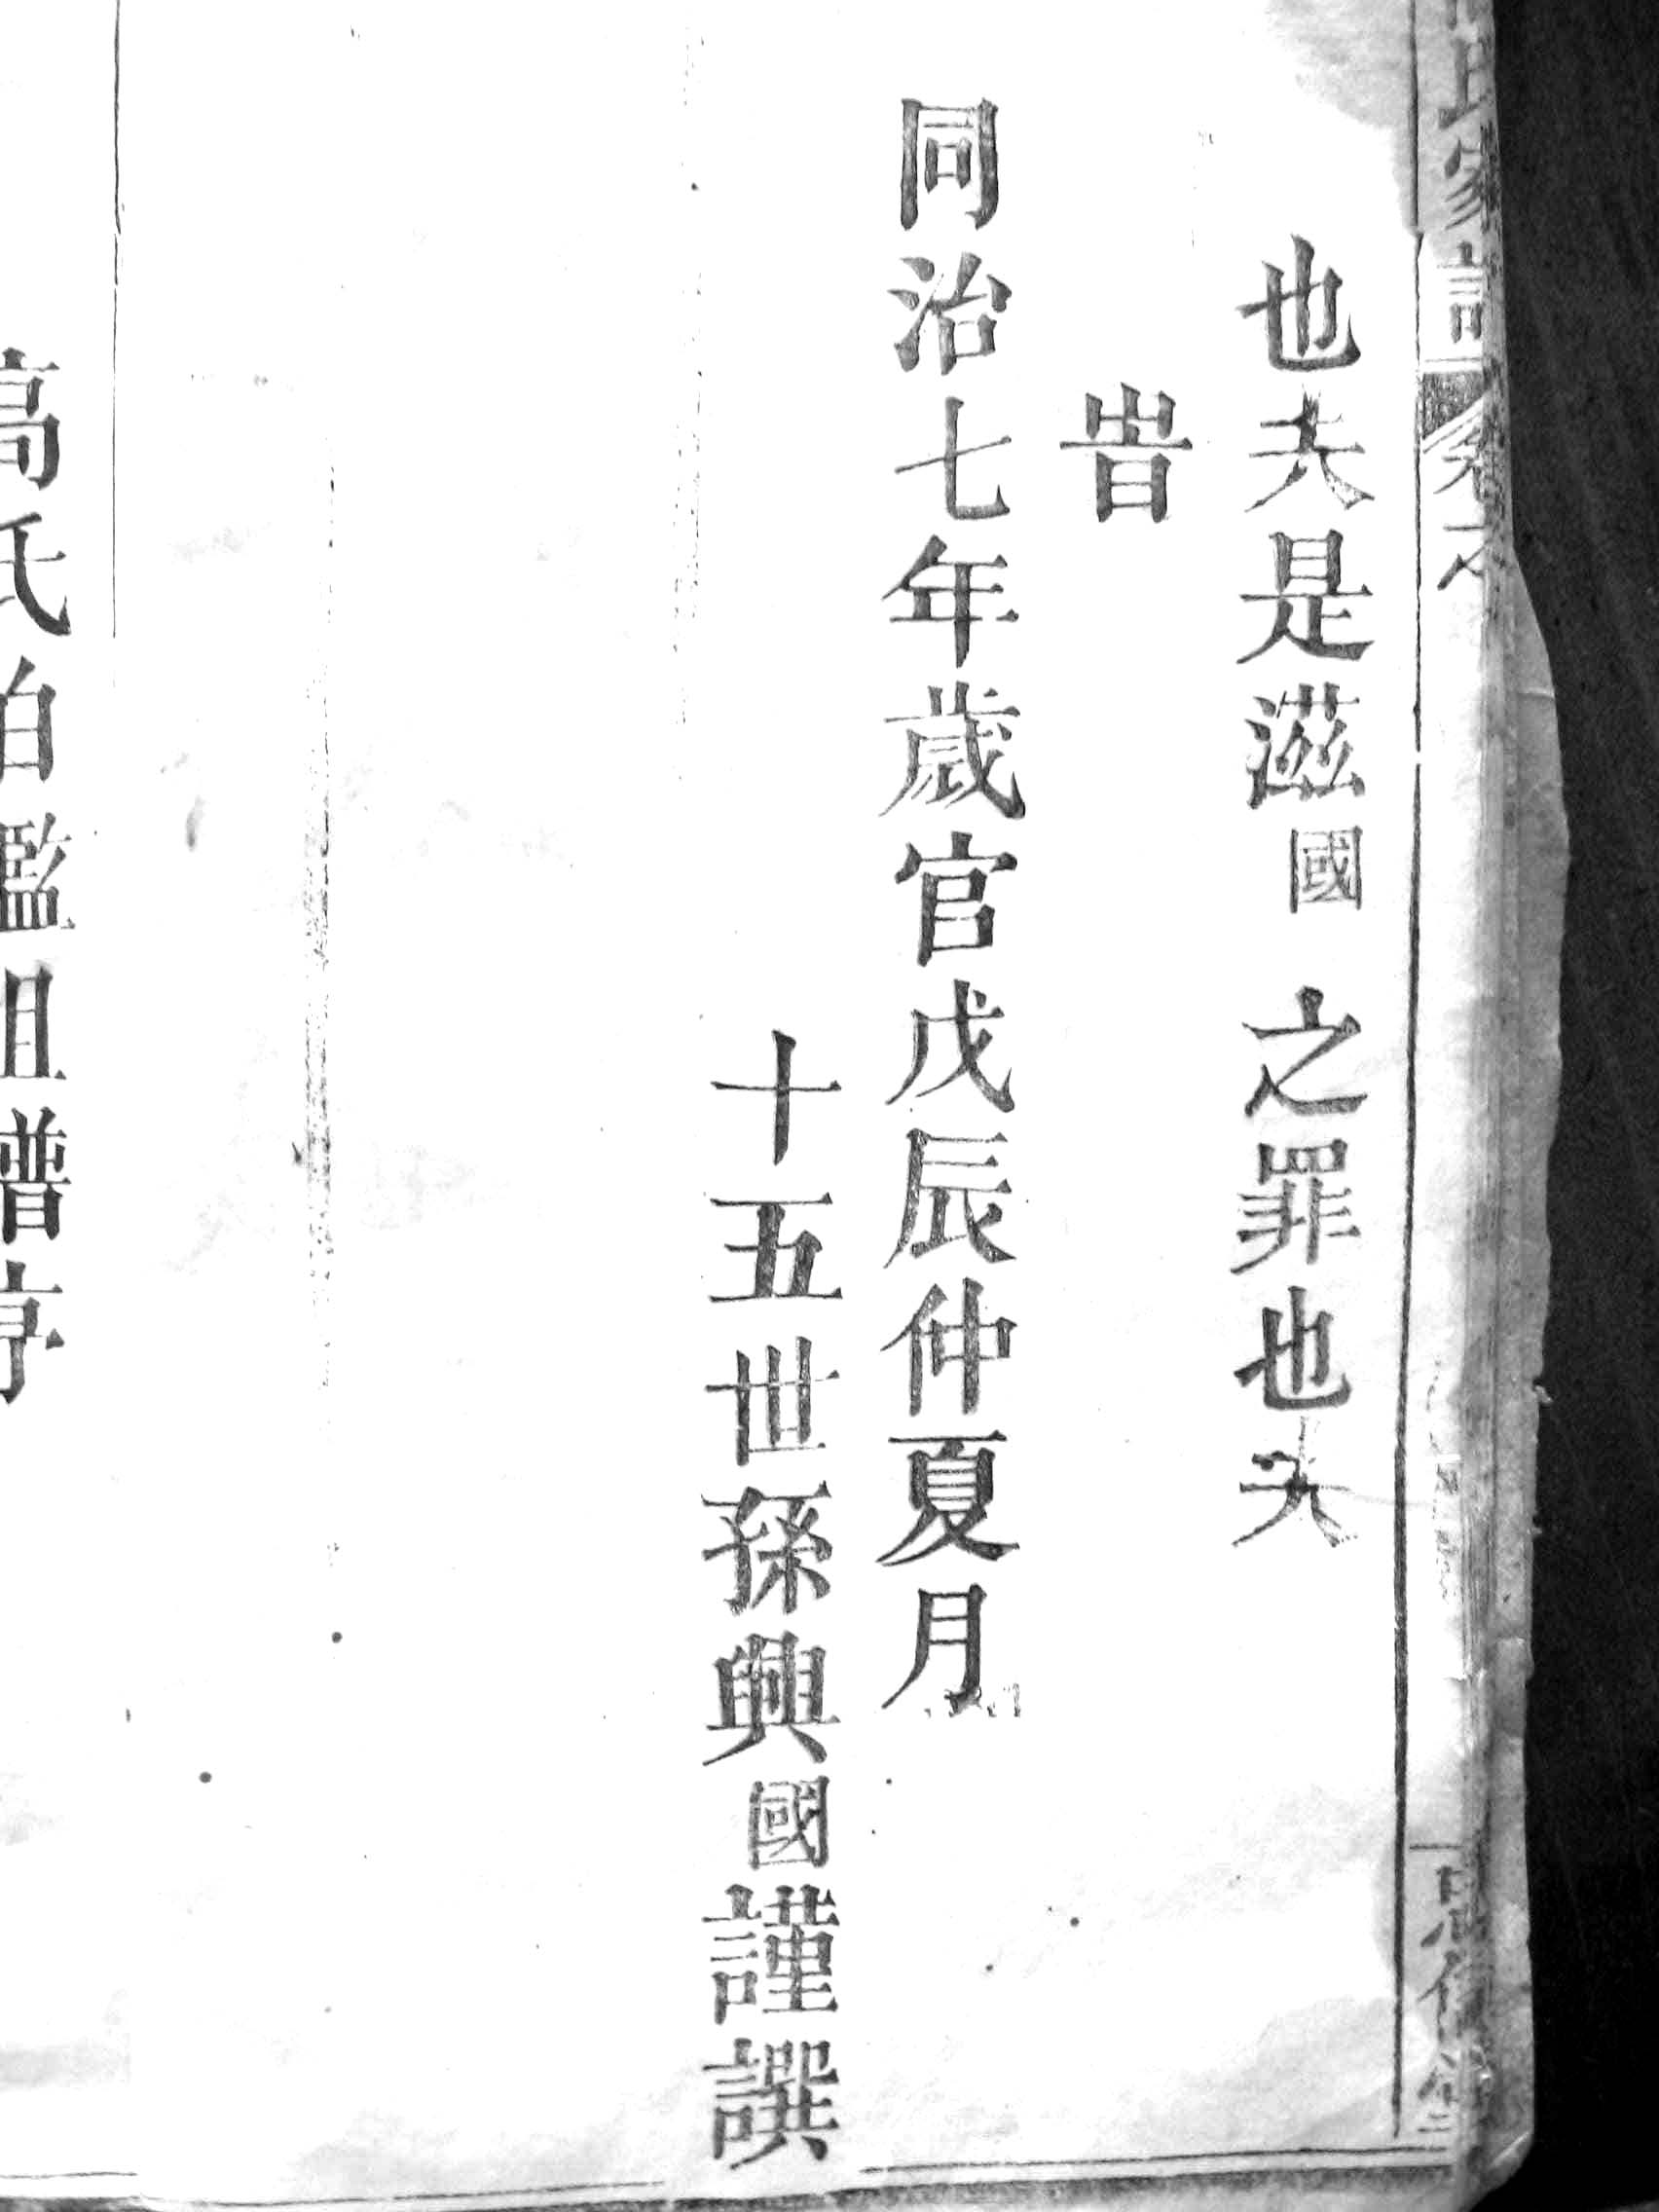 氏家譜 卷之
也夫是滋國之罪也夫
旹
同治七年歲官戊辰仲夏月
十五世孫興國謹譔
高氏伯鑑祖譜序